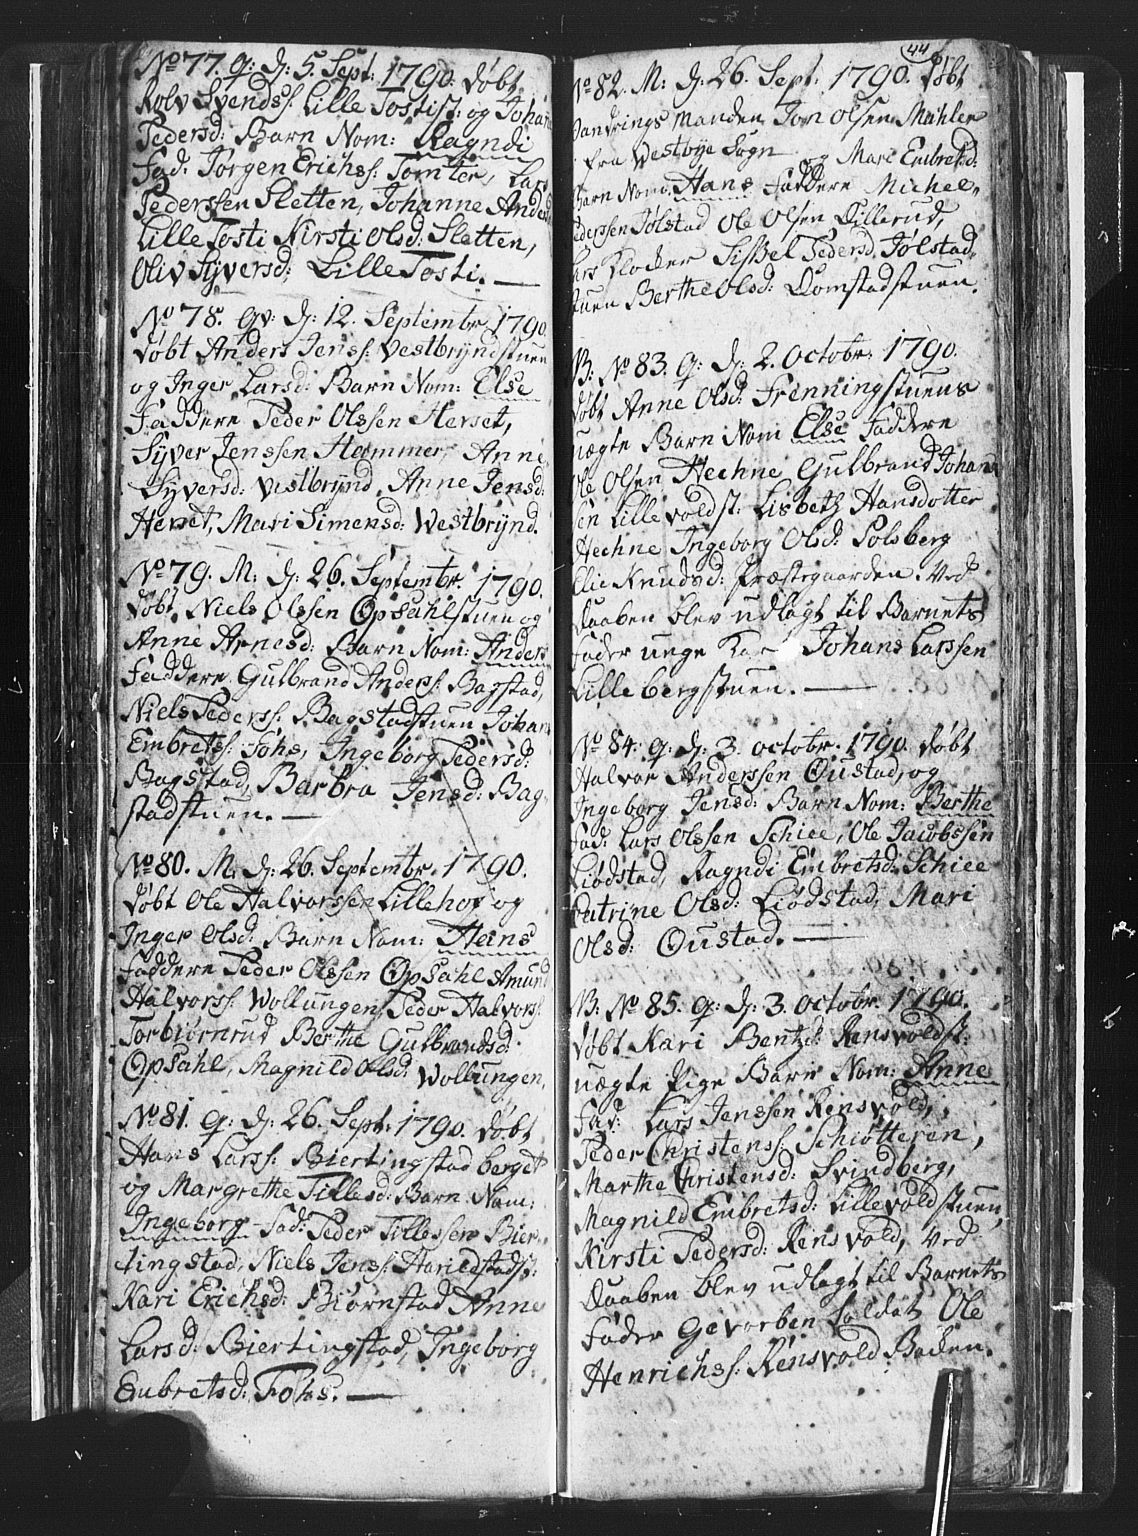 No 77. q: d: 5. Sept: 1790. døbt
Rolv Svends: Lille Tostist: og Johan
Pedersd: Barn Nom: Ragndi
Fad. Jørgen Erichs: Tomter, Lars
Pederssen Sletten, Johanne Anders
Lille Tosti Kirsti Olsd: Sletten,
Oliv Syversd: Lille Tosti.
No 78. qv: d: 12. Septembr 1790.
døbt Anders Jens: Vestbryndstuen
og Inger Larsd: Barn Nom: Else
Faddere Peder Olssen Herset,
Syver Jenssen Hammer, Anne
Syversd: Vestbrynd, Anne Jensd:
Herset, Mari Simensd: Westbrynd.
No 79. M: d: 26. Septembr. 1790.
døbt Niels Olssen Opsahlstuen og
Anne Arnesd: Barn Nom: Anders
Faddere Gulbrand Anders: Bagstad,
Niels Peders: Bagstadstuen Johan
Embrets: Fohs, Ingeborg Pedersd:
Bagstad, Barbra Jensd: Bag-
stadstuen.
No 80. M: d: 26. Septembr. 1790.
døbt Ole Halvorssen Lillehof og
Inger Olsd: Barn Nom: Heins
Faddere Peder Olssen Opsahl Amund
Halvorss: Wollungen, Peder Halvorss:
Torbiørnrud Berthe Gulbrandsd:
Opsahl, Magnild Olsd: Wollungen,
No 81. q: d: 26. Sept: 1790. døbt
Hans Larss: Biertingstad berget
og Margrethe Tillesd: Barn Nom:
Ingeborg Fad: Peder Tillessen Bier-
tingstad, Niels Jens: Harildstadst:
Kari Erichsd: Biørnstad Anne
Larsd: Biertingstad, Ingeborg
Embretsd: Fohs.
44
No 82. M: d: 26. Sept: 1790. døbt
Vandrings Manden Jon Olsen Mæhler
fra Westbye Sogn og Mari Embretsd:
Barn Nom: Hans Faddere Michel
Pederssen Jølstad Ole Olsen Dillerud,
Lars Klocker Sissel Pedersd. Jølstad-
stuen Berthe Olsd: Domstadstuen.
B: No 83. q: d: 2. Octobr: 1790.
døbt Anne Olsd: Frenningstuens
uægte Barn Nom Else Faddere
Ole Olsen Hechne Gulbrand Johans
sen Lillevoldst: Lisbeth Hansdotter
Hechne Ingeborg Olsd: Solsberg
Elie Knudsd: Præstegaarden. Ved
Daaben blev udlagt til Barnets
Fader unge Kar Johans Larssen
Lillebergstuen.
No 84. q: d: 3. octobr. 1790. døbt
Halvor Anderssen Oustad, og
Ingeborg Jensd: Barn Nom: Berthe
Fad: Lars Olssen Schiee, Ole Jacobssen
Liødstad, Ragndi Embretsd: Schiee
Catrine Olsd: Liødstad, Mari
Olsd: Oustad.
B: No 85. q: d: 3. octobr. 1790.
døbt Kari Bentzd: Rensvoldst:
uægte Pige Barn Nom: Anne
Fad: Lars Jenssen Rensvold,
Peder Christenss: Schiøtteren,
Marthe Christensd: Svindberg,
Magnild Embretsd: Lillevoldstuen,
Kirsti Pedersd: Rensvold, Ved
Daaben blev udlagt til Barnets
Fader Gevorben Soldat Ole
Henrichss: Rensvold Baden.